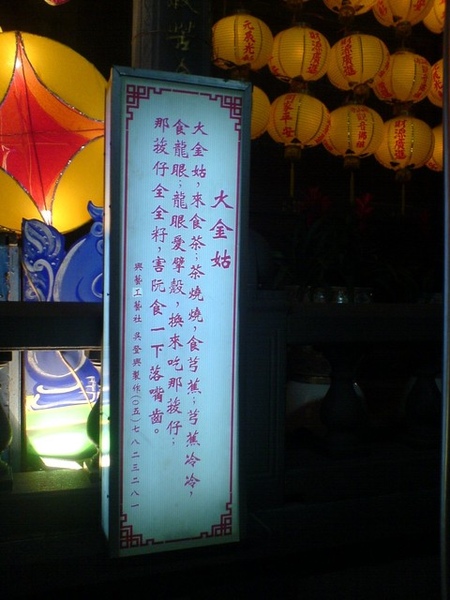 大金姑
大金姑，來食茶；茶燒燒，食芎蕉；芎蕉冷冷，
食龍眼；龍眼愛擘殼，換來吃那菝仔；
那菝仔全全籽，害阮食一下落嘴齒。
興藝工藝社 吳登興製作(○五)七八二三二八一
平安
財源廣進